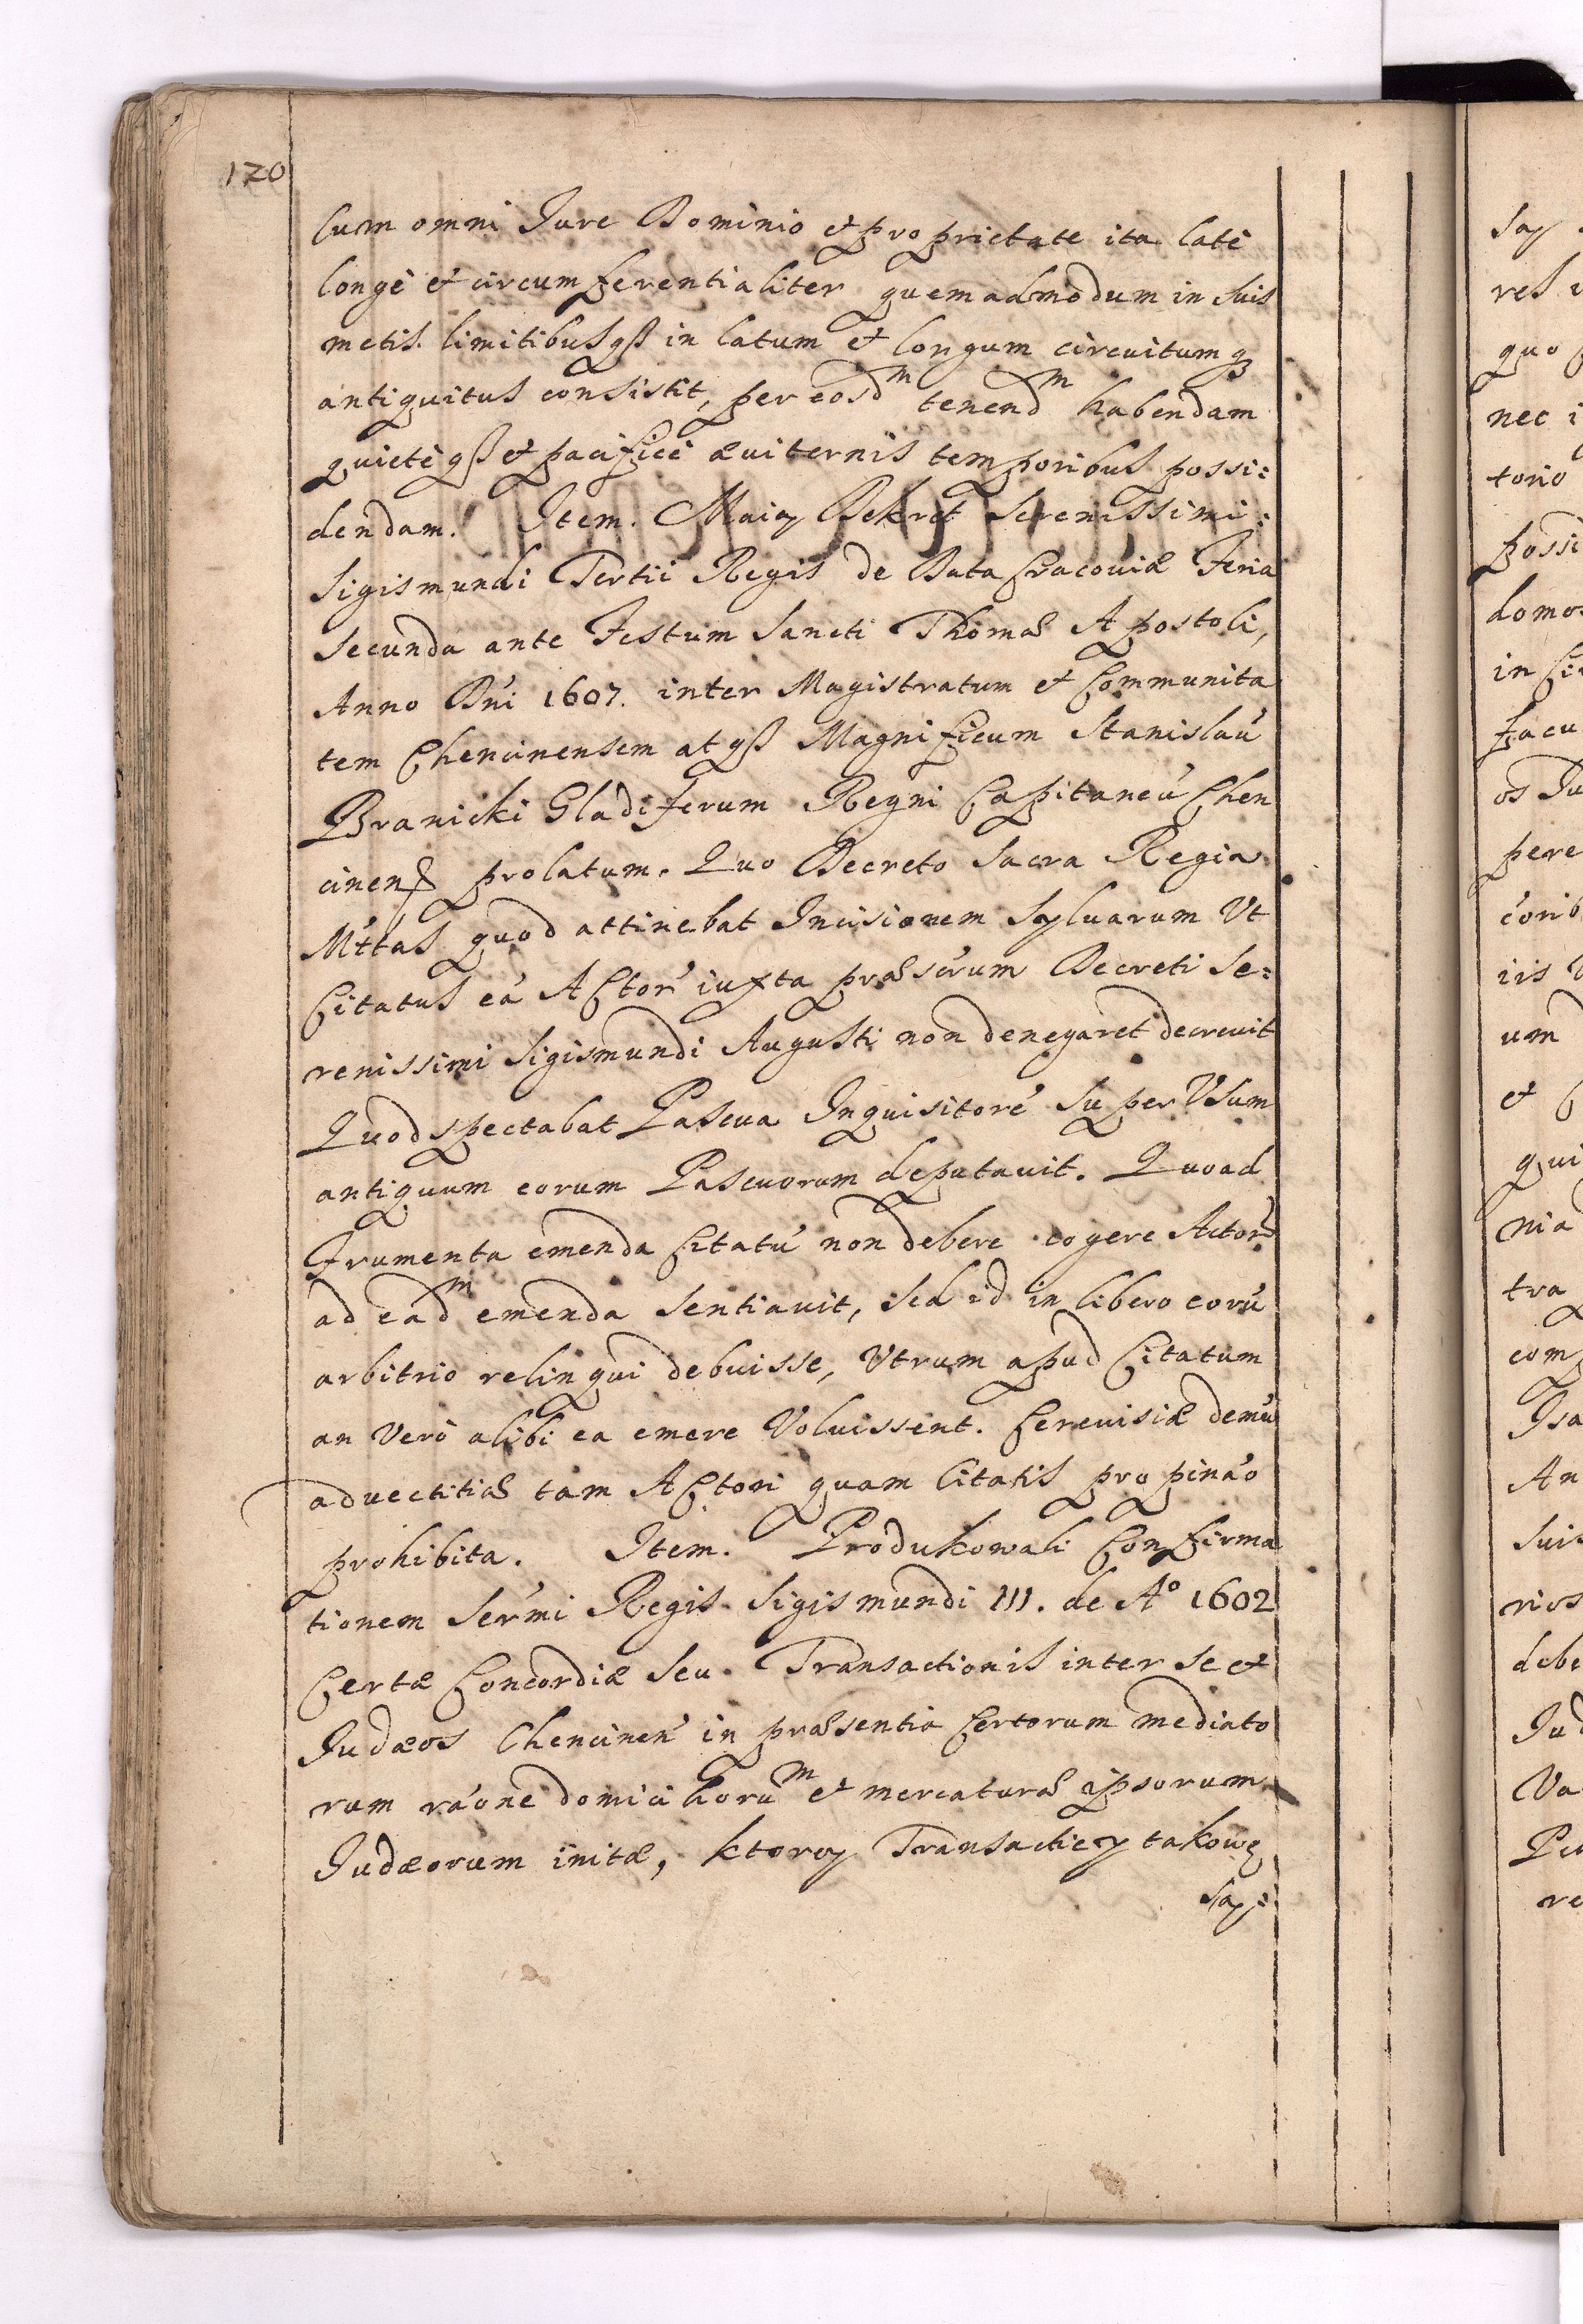 120
Cum omni Jure Dominio et proprietate ita latè
longè et circumferentialiter quemadmodum in suis
metis limitibusqȝ in latum et longum circuitumqȝ
antiquitus consistit, per eosdᵐ tenendᵐ habendam
quietèqȝ et pacificè æuiternis temporibus possi:
dendam. Item. Maią Dekret Serenissimi
Sigismundi Tertii Regis de Data Cracoviæ Feria
secunda ante Festum Sancti Thomæ Apostoli,
Anno Dńi 1607. inter Magistratum et Communita
tem Chencinensem atqȝ Magnificum Stanislaú
Branicki Gladiferum Regni Capitaneú Chen
cinens prolatum. Quo Decreto Sacra Regia
Mttas quod attinebat Incisionem Syluarum Vt
Citatus eá Actoŕ iuxta præscŕum Decreti Se:
renissimi Sigismundi Augusti non denegaret decreuit
Quod spectabat Pascua Inquisitoré super Vsum
antiquum eorum Pascuorum deputauit. Quoad
Frumenta emenda Citatú non debere cogere Actores
ad eadᵐ emenda sentiauit, sed id in libero eorú
arbitrio relinqui debuisse, Vtrum apud Citatum
an Verò alibi ea emere Voluissent. Cereuisiæ demú
advectitiæ tam Actori quam Citatis propináo
prohibita. Item. Produkowali Confirma
tionem Serḿi Regis Sigismundi III. de A° 1602
Certæ Concordiæ seu Transactionis inter se et
Judæos Chencineń in præsentia Certorum mediato
rum ráone domiciliorúᵐ et mercaturæ ipsorum
Judæorum initæ, ktorey Transactiey takowe
Są: